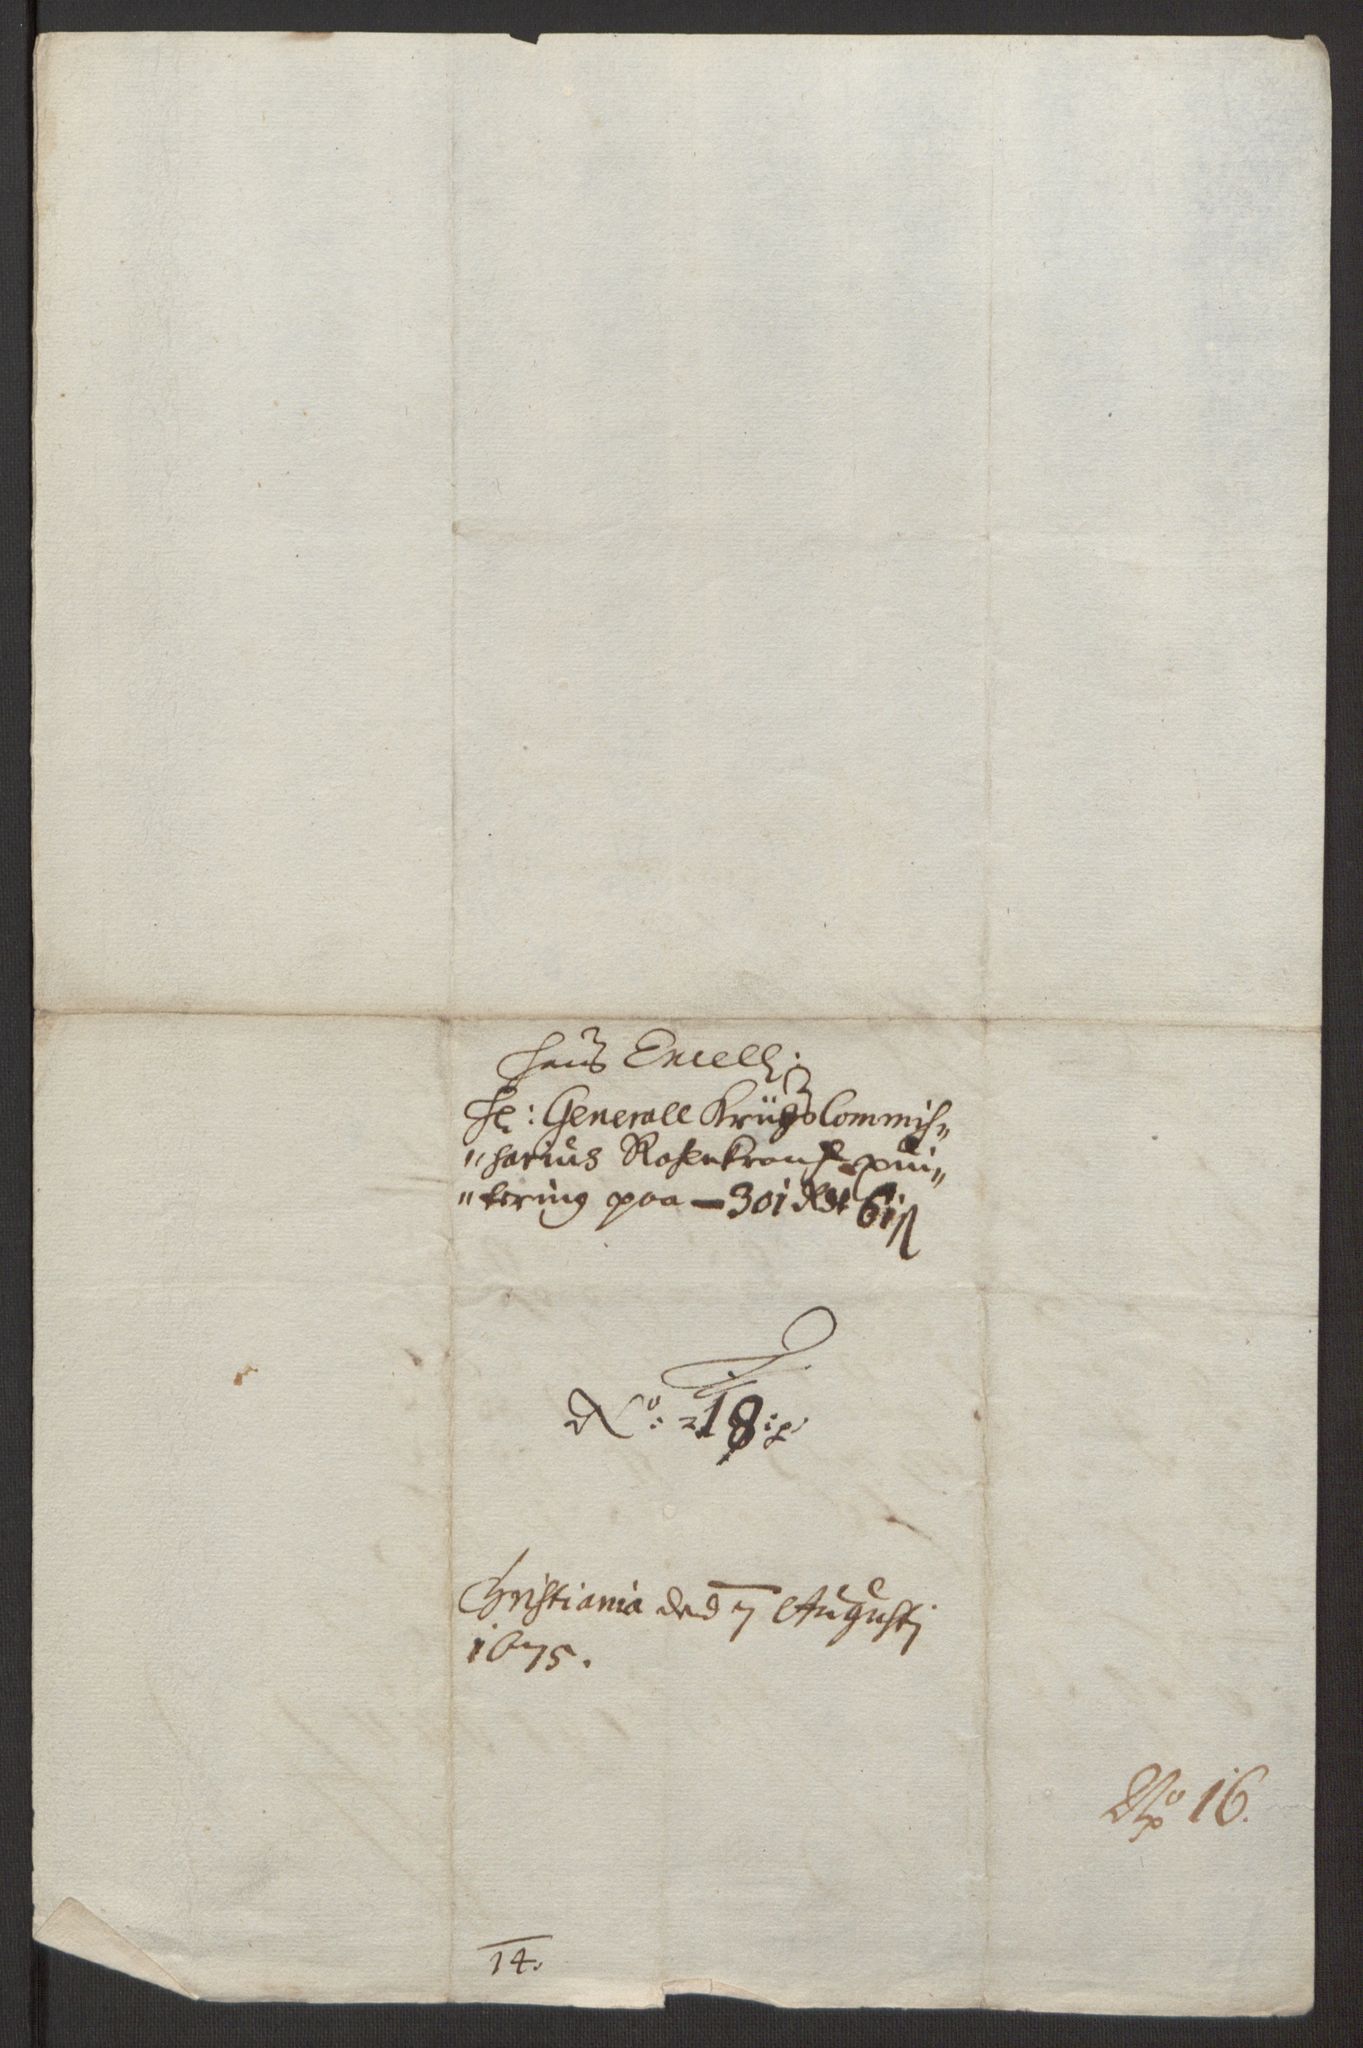 Hans Excell:
Hr: Generall Krügs Commis„
„sarius Rosenkrantz qvi„
„tering paa — 301 Rdr 61 ß
No: 18:
Christiania den 7 Augustj
1675.
No 16.
14.